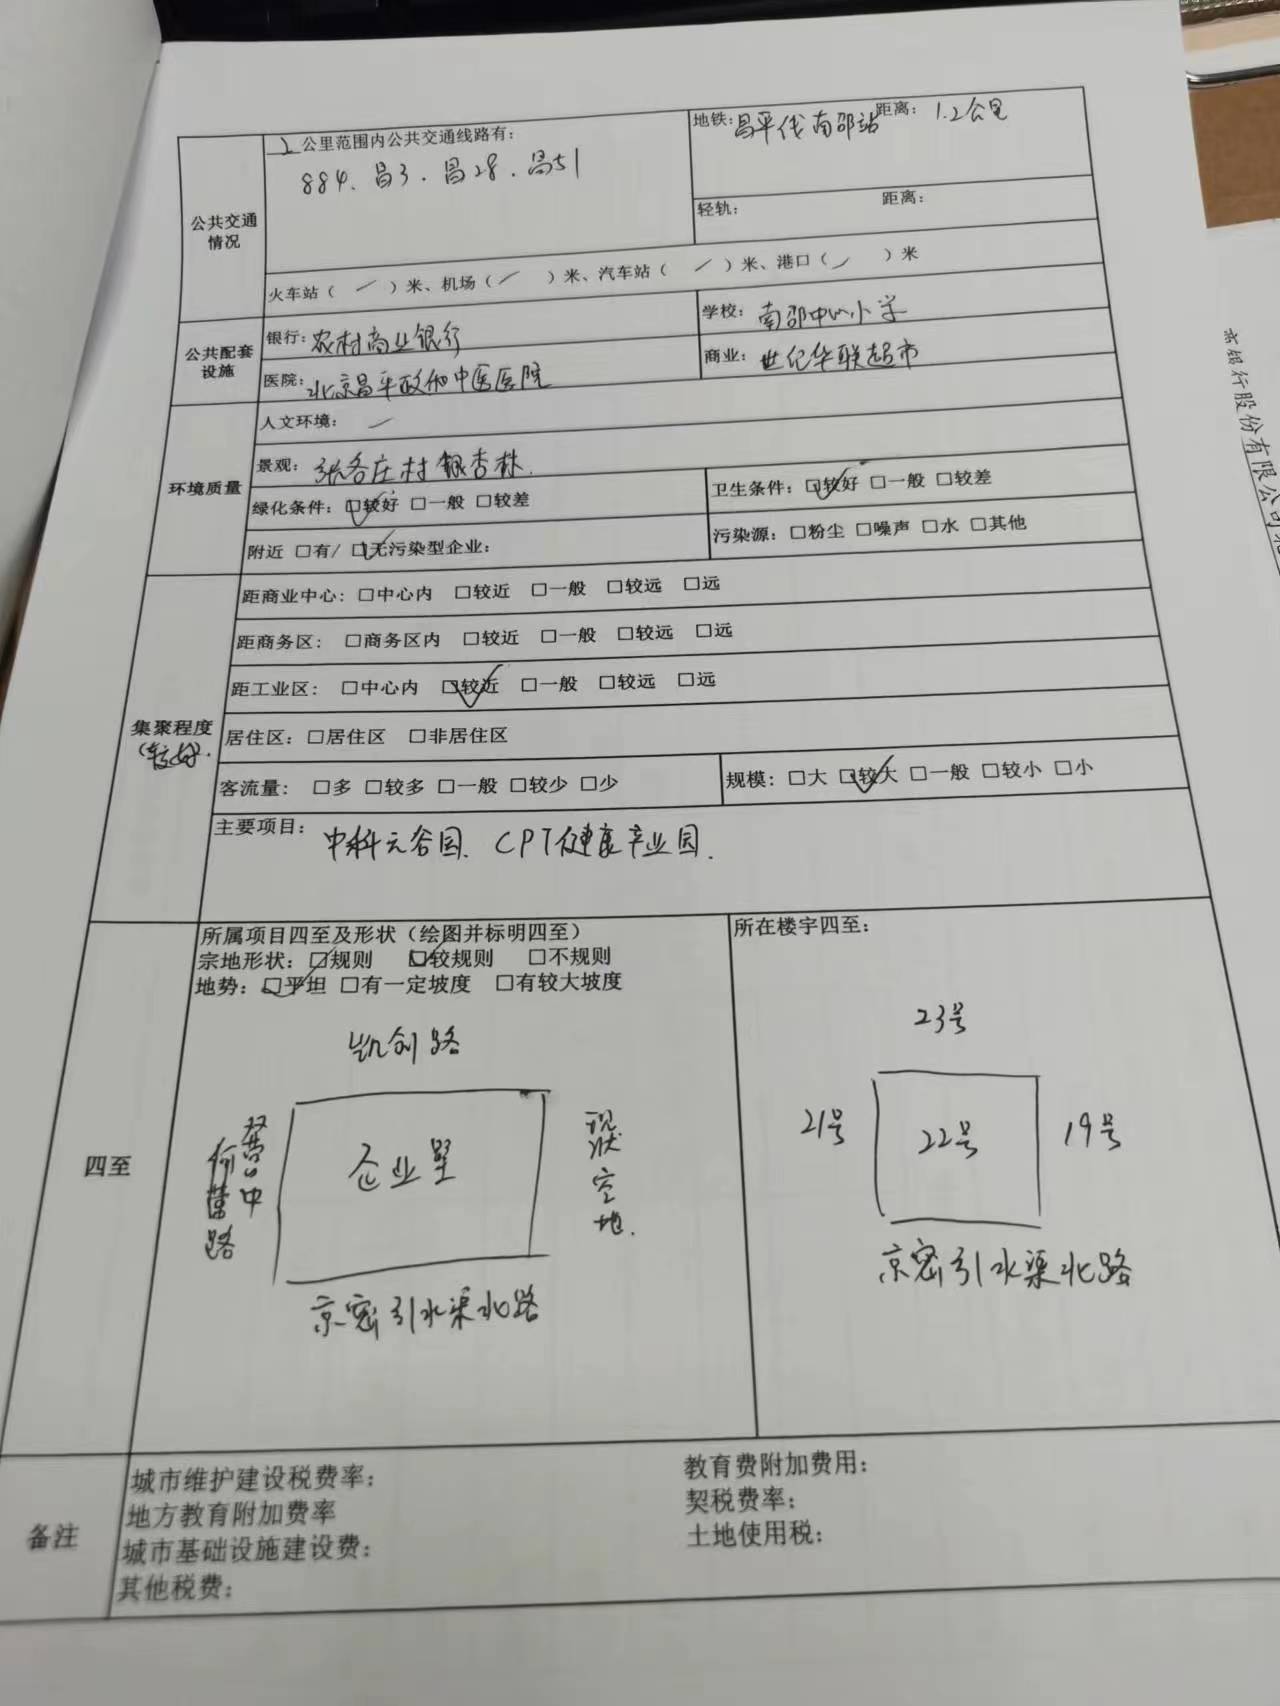 公共交通情况
2公里范围内公共交通线路有：
884、昌3、昌28、昌51
地铁：昌平线南邵站 距离：1.2公里
轻轨： 距离：
火车站（ ／ ）米、机场（ ／ ）米、汽车站（ ／ ）米、港口（ ／ ）米
公共配套设施
银行：农村商业银行
学校：南邵中心小学
医院：北京昌平政和中医医院
商业：世纪华联超市
环境质量
人文环境：／
景观：张各庄村银杏林.
绿化条件：☑较好 □一般 □较差
卫生条件：☑较好 □一般 □较差
附近 □有/ ☑无污染型企业：
污染源：□粉尘 □噪声 □水 □其他
集聚程度
（较好）.
距商业中心：□中心内 □较近 □一般 □较远 □远
距商务区：□商务区内 □较近 □一般 □较远 □远
距工业区：□中心内 ☑较近 □一般 □较远 □远
居住区：□居住区 □非居住区
客流量：□多 □较多 □一般 □较少 □少
规模：□大 ☑较大 □一般 □较小 □小
主要项目：中科云谷园、CPT健康产业园.
四至
所属项目四至及形状（绘图并标明四至）
宗地形状：☑规则 ☑较规则 □不规则
地势：☑平坦 □有一定坡度 □有较大坡度
凯创路
双营中
何营路
企业墅
现状空地.
京密引水渠北路
所在楼宇四至：
23号
21号
22号
19号
京密引水渠北路
备注
城市维护建设税费率：
教育费附加费用：
地方教育附加费率
契税费率：
城市基础设施建设费：
土地使用税：
其他税费：
银行股份有限公司